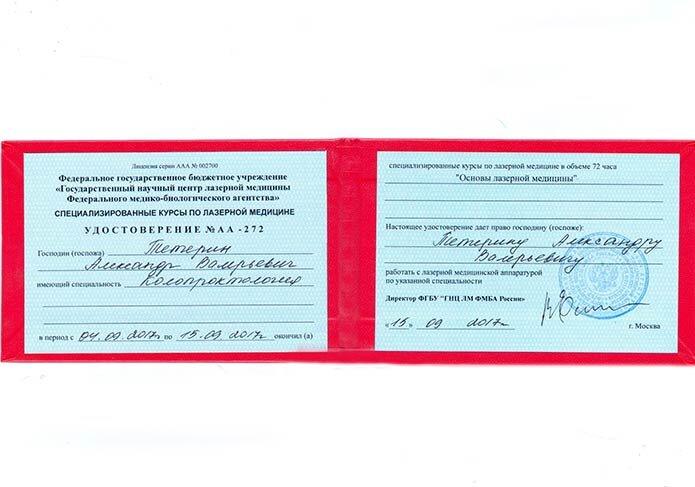 Лицензия серии ААА № 002700
Федеральное государственное бюджетное учреждение
«Государственный научный центр лазерной медицины
Федерального медико-биологического агентства»
СПЕЦИАЛИЗИРОВАННЫЕ КУРСЫ ПО ЛАЗЕРНОЙ МЕДИЦИНЕ
УДОСТОВЕРЕНИЕ № АА - 272
Господин (госпожа) Тетерин
Александр Валерьевич
имеющий специальность Колопроктология
в период с 04.09.2017г по 15.09.2017г окончил (а)
специализированные курсы по лазерной медицине в объеме 72 часа
"Основы лазерной медицины"
Настоящее удостоверение дает право господину (госпоже):
Тетерину Александру
Валерьевичу
работать с лазерной медицинской аппаратурой
по указанной специальности
Директор ФГБУ "ГНЦ ЛМ ФМБА России"
« 15 » 09 2017г
г. Москва